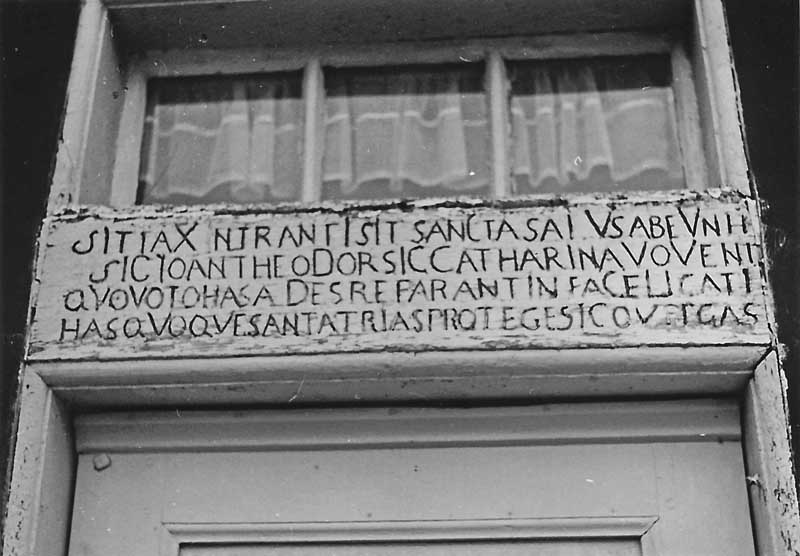 SIT IAX NTRANTI SIT SANCTA SAI VS ABEVNTI
SIC IOAN THEODOR SIC CATHARINA VOVENT
QVO VOTO HAS AEDES REPARANT IN FACE LICATI
HAS QVOQVE SANTA TRIAS PROTEGE SIC